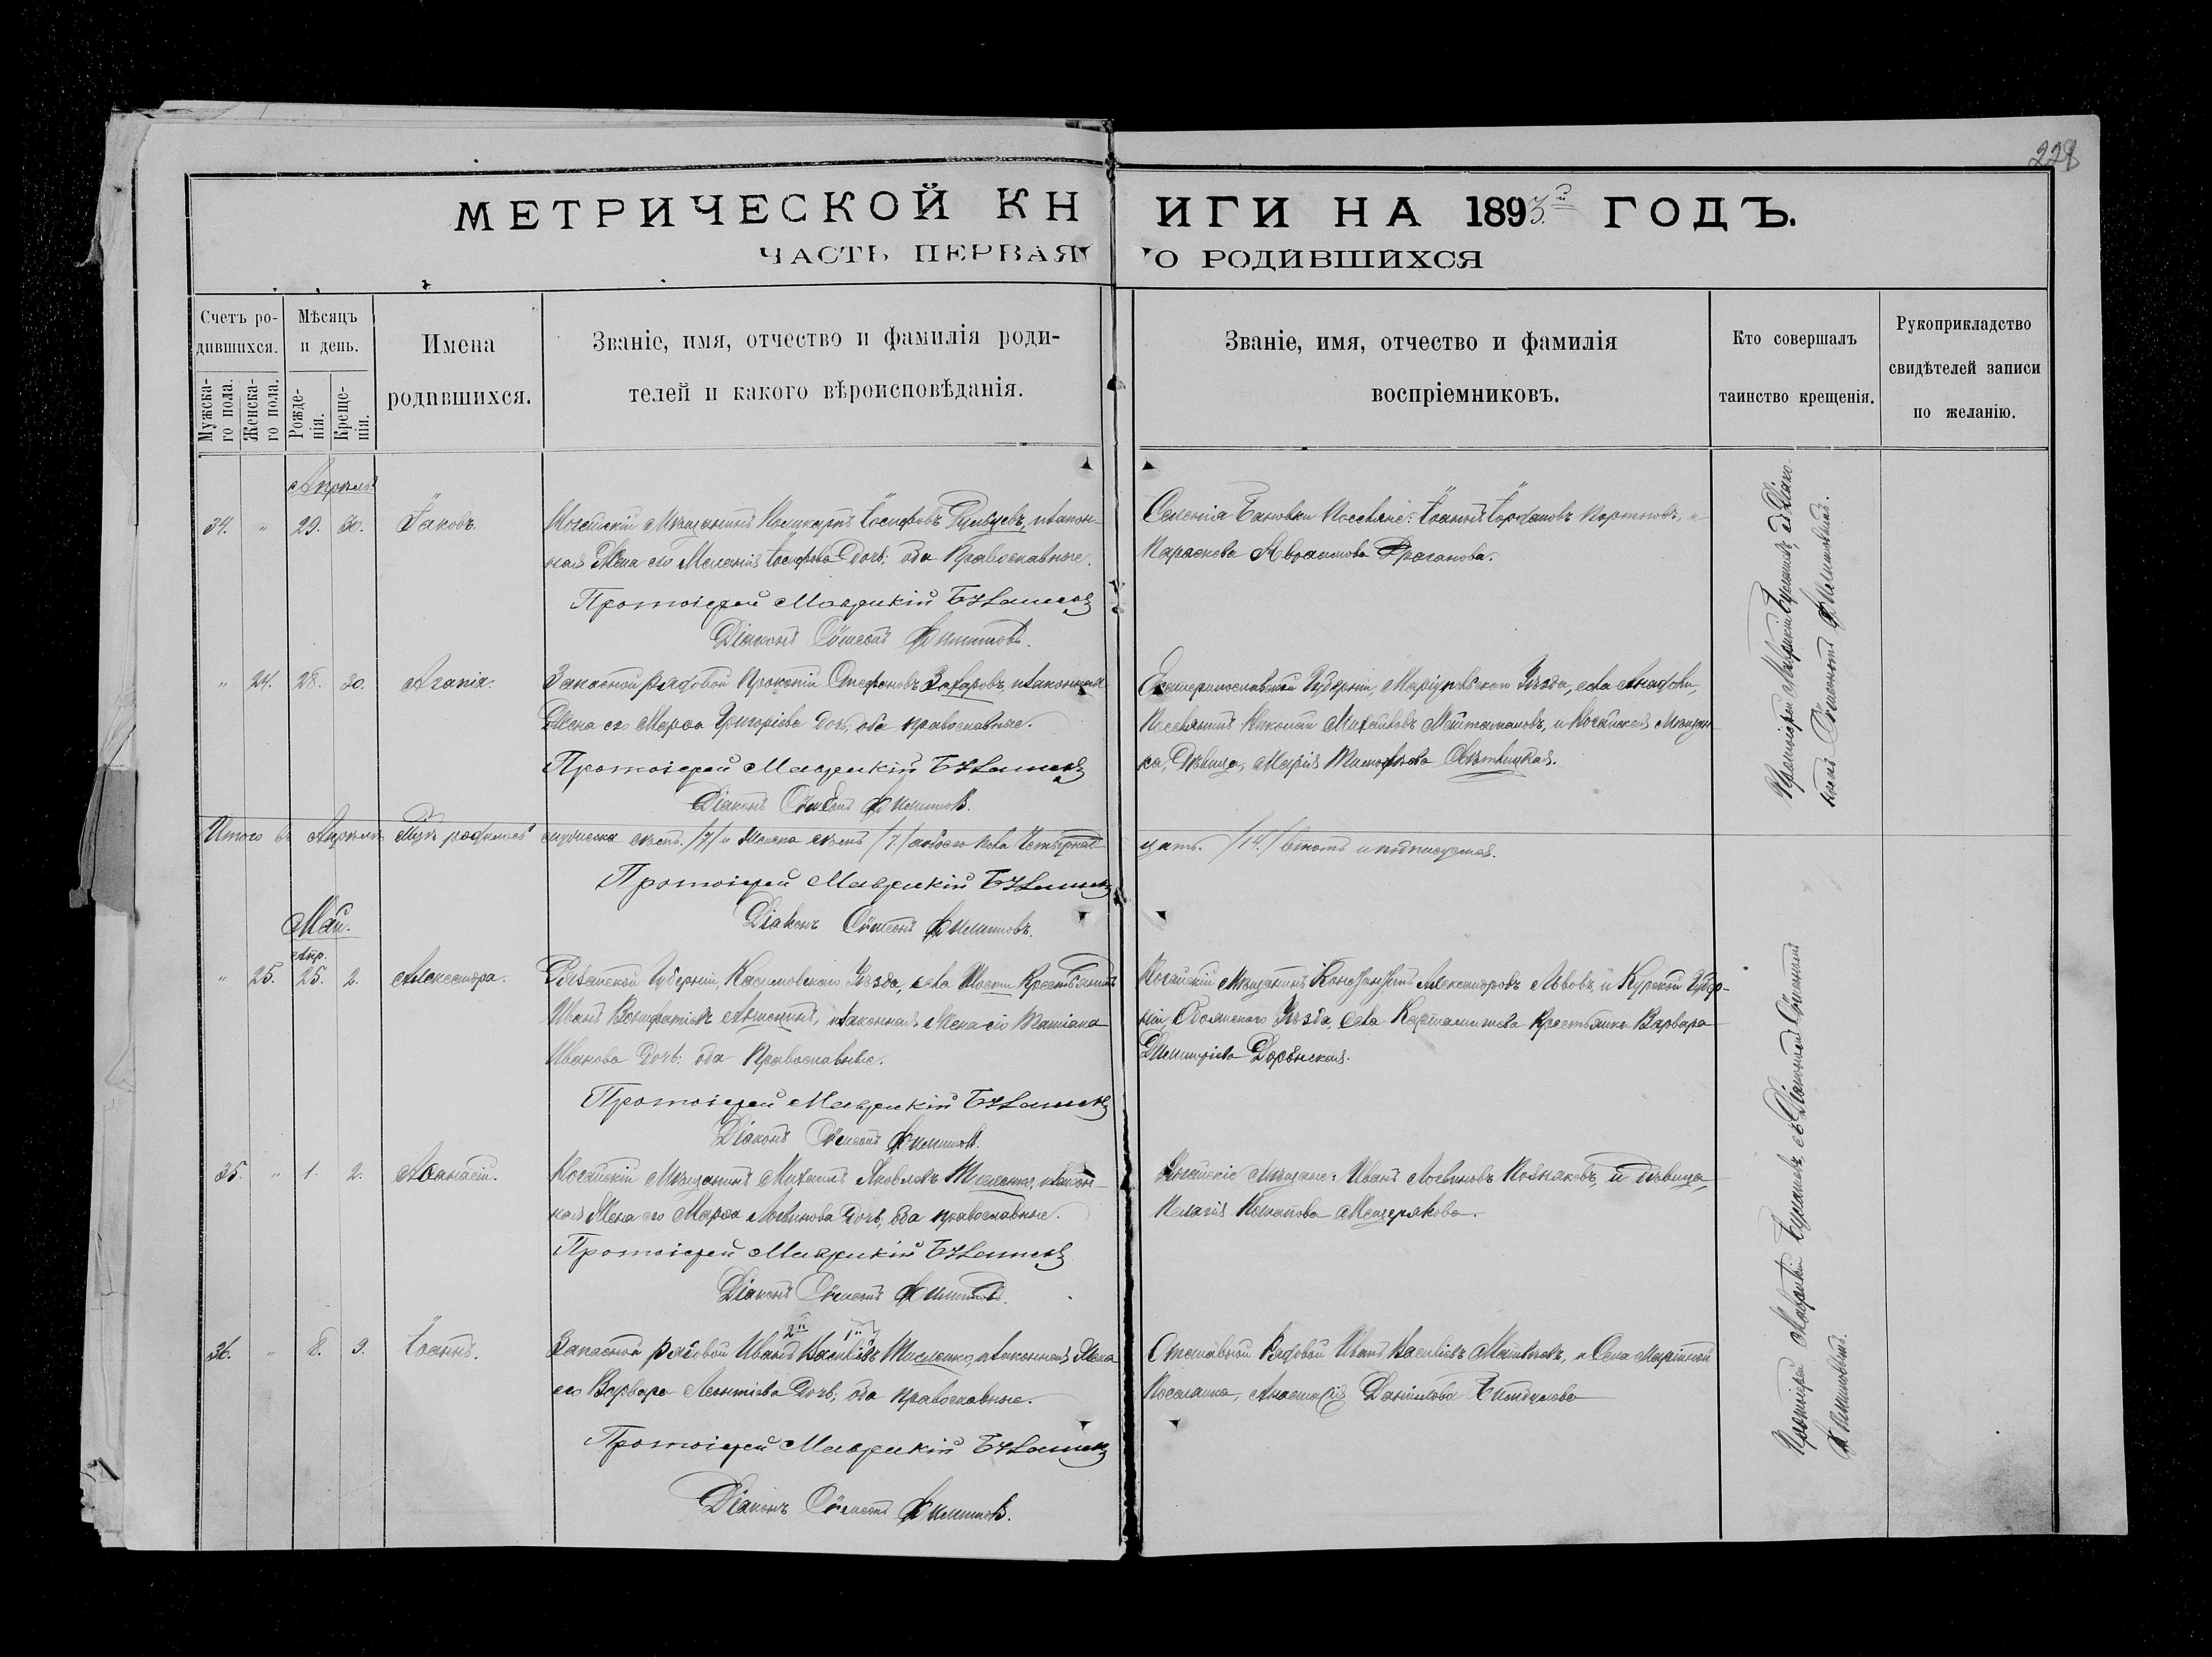 228
МЕТРИЧЕСКОЙ КНИГИ НА 1893й ГОДЪ.
ЧАСТЬ ПЕРВАЯ О РОДИВШИХСЯ
Счетъ родившихся.
Мужскаго пола.
Женскаго пола.
Мѣсяцъ и день.
Рожденія.
Крещенія.
Имена родившихся.
Званіе, имя, отчество и фамилія родителей и какого вѣроисповѣданія.
Званіе, имя, отчество и фамилія воспріемниковъ.
Кто совершалъ таинство крещенія.
Рукоприкладство свидѣтелей записи по желанію.
Апрель
34. " 29. 30. Іаковъ.
Ногайскій Мѣщанинъ Поликарпъ Іосифовъ и закон-
ная Жена его Меланія Іосифова Дочь; оба Православные.
Протоіерей Маврикій
Діаконъ Сѵмеонъ Филиповъ.
Селенія Бановки Поселяне: Іоаннъ Іордановъ Портновъ, и
Параскева Авраамова Драганова.
Протоіерей Маврикій съ Діако-
номъ Сѵмеономъ Филиповымъ.
" 24. 28. 30. Агапія.
Запасной Рядовой Прокопій Стефановъ Захаровъ, и законная
Жена его Марѳа Григоріева Дочь, оба православные.
Протоіерей Маврикій
Діаконъ Сѵмеонъ Филиповъ.
Екатеринославской Губерніи, Маріупольскаго Уѣзда, села
Поселянинъ Николай Михайловъ и Ногайская Мѣщан-
ка, Дѣвица, Марія Тимофѣева Свѣтлицкая.
Итого въ Апрелѣ Мцѣ родилось мужеска семь /7/ и Женска семь /7./ обоего пола Четырнад-
цать. /14./ въ томъ и подписуемся.
Протоіерей Маврикій
Діаконъ Сѵмеонъ Филиповъ.
Май.
Апр.
" 25. 25. 2. Александра.
Рязанской Губерніи, Касимовскаго Уѣзда, села Крестьянинъ
Иванъ и законная Жена его Татіана
Иванова Дочь: оба Православные.
Протоіерей Маврикій
Діаконъ Сѵмеонъ Филиповъ.
Ногайскій Мѣщанинъ Константинъ Александровъ Львовъ, и Курской Губер-
ніи, Обоянскаго Уѣзда Села Крестьянка Варвара
Димитріева
Протоіерей Маврикій съ Діакономъ Сѵмеономъ
Филиповымъ.
35. " 1. 2. Аѳанасій.
Ногайскій Мѣщанинъ Михаилъ Яковлевъ и закон-
ная Жена его Марѳа Логвинова Дочь, оба православные.
Протоіерей Маврикій
Діаконъ Сѵмеонъ Филиповъ.
Ногайскіе Мѣщане: Иванъ Логвиновъ Позняковъ, и дѣвица,
Пелагія Потапова Мещерякова.
36. " 8. 9. Іоаннъ.
2й 1й
Запасной Рядовой Иванъ Васильевъ и законная Жена
его Варвара Леонтіева Дочь, оба православные.
Протоіерей Маврикій
Діаконъ Сѵмеонъ Филиповъ.
Отставной Рядовой Иванъ Васильевъ и Села
Поселянка, Анастасія Данилова